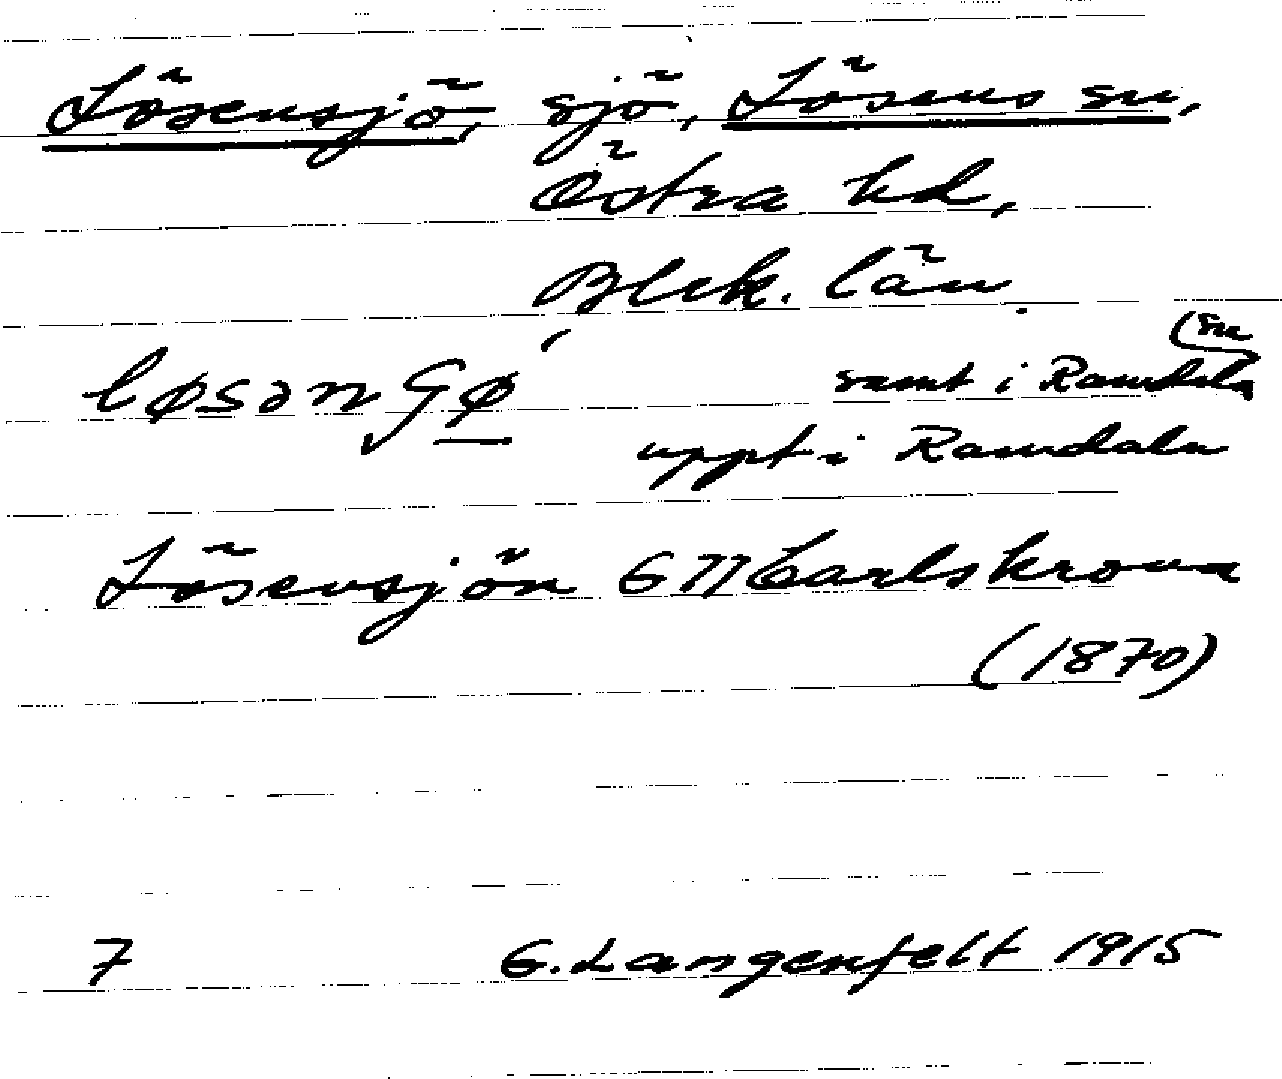 Lösensjö, sjö, Lösens sn,
Östra hd,
Blek. län.
samt i Ramdala (sn
uppt i Ramdala
Lösensjön G Carlskrona
(1870)
7 G. Langenfelt 1915